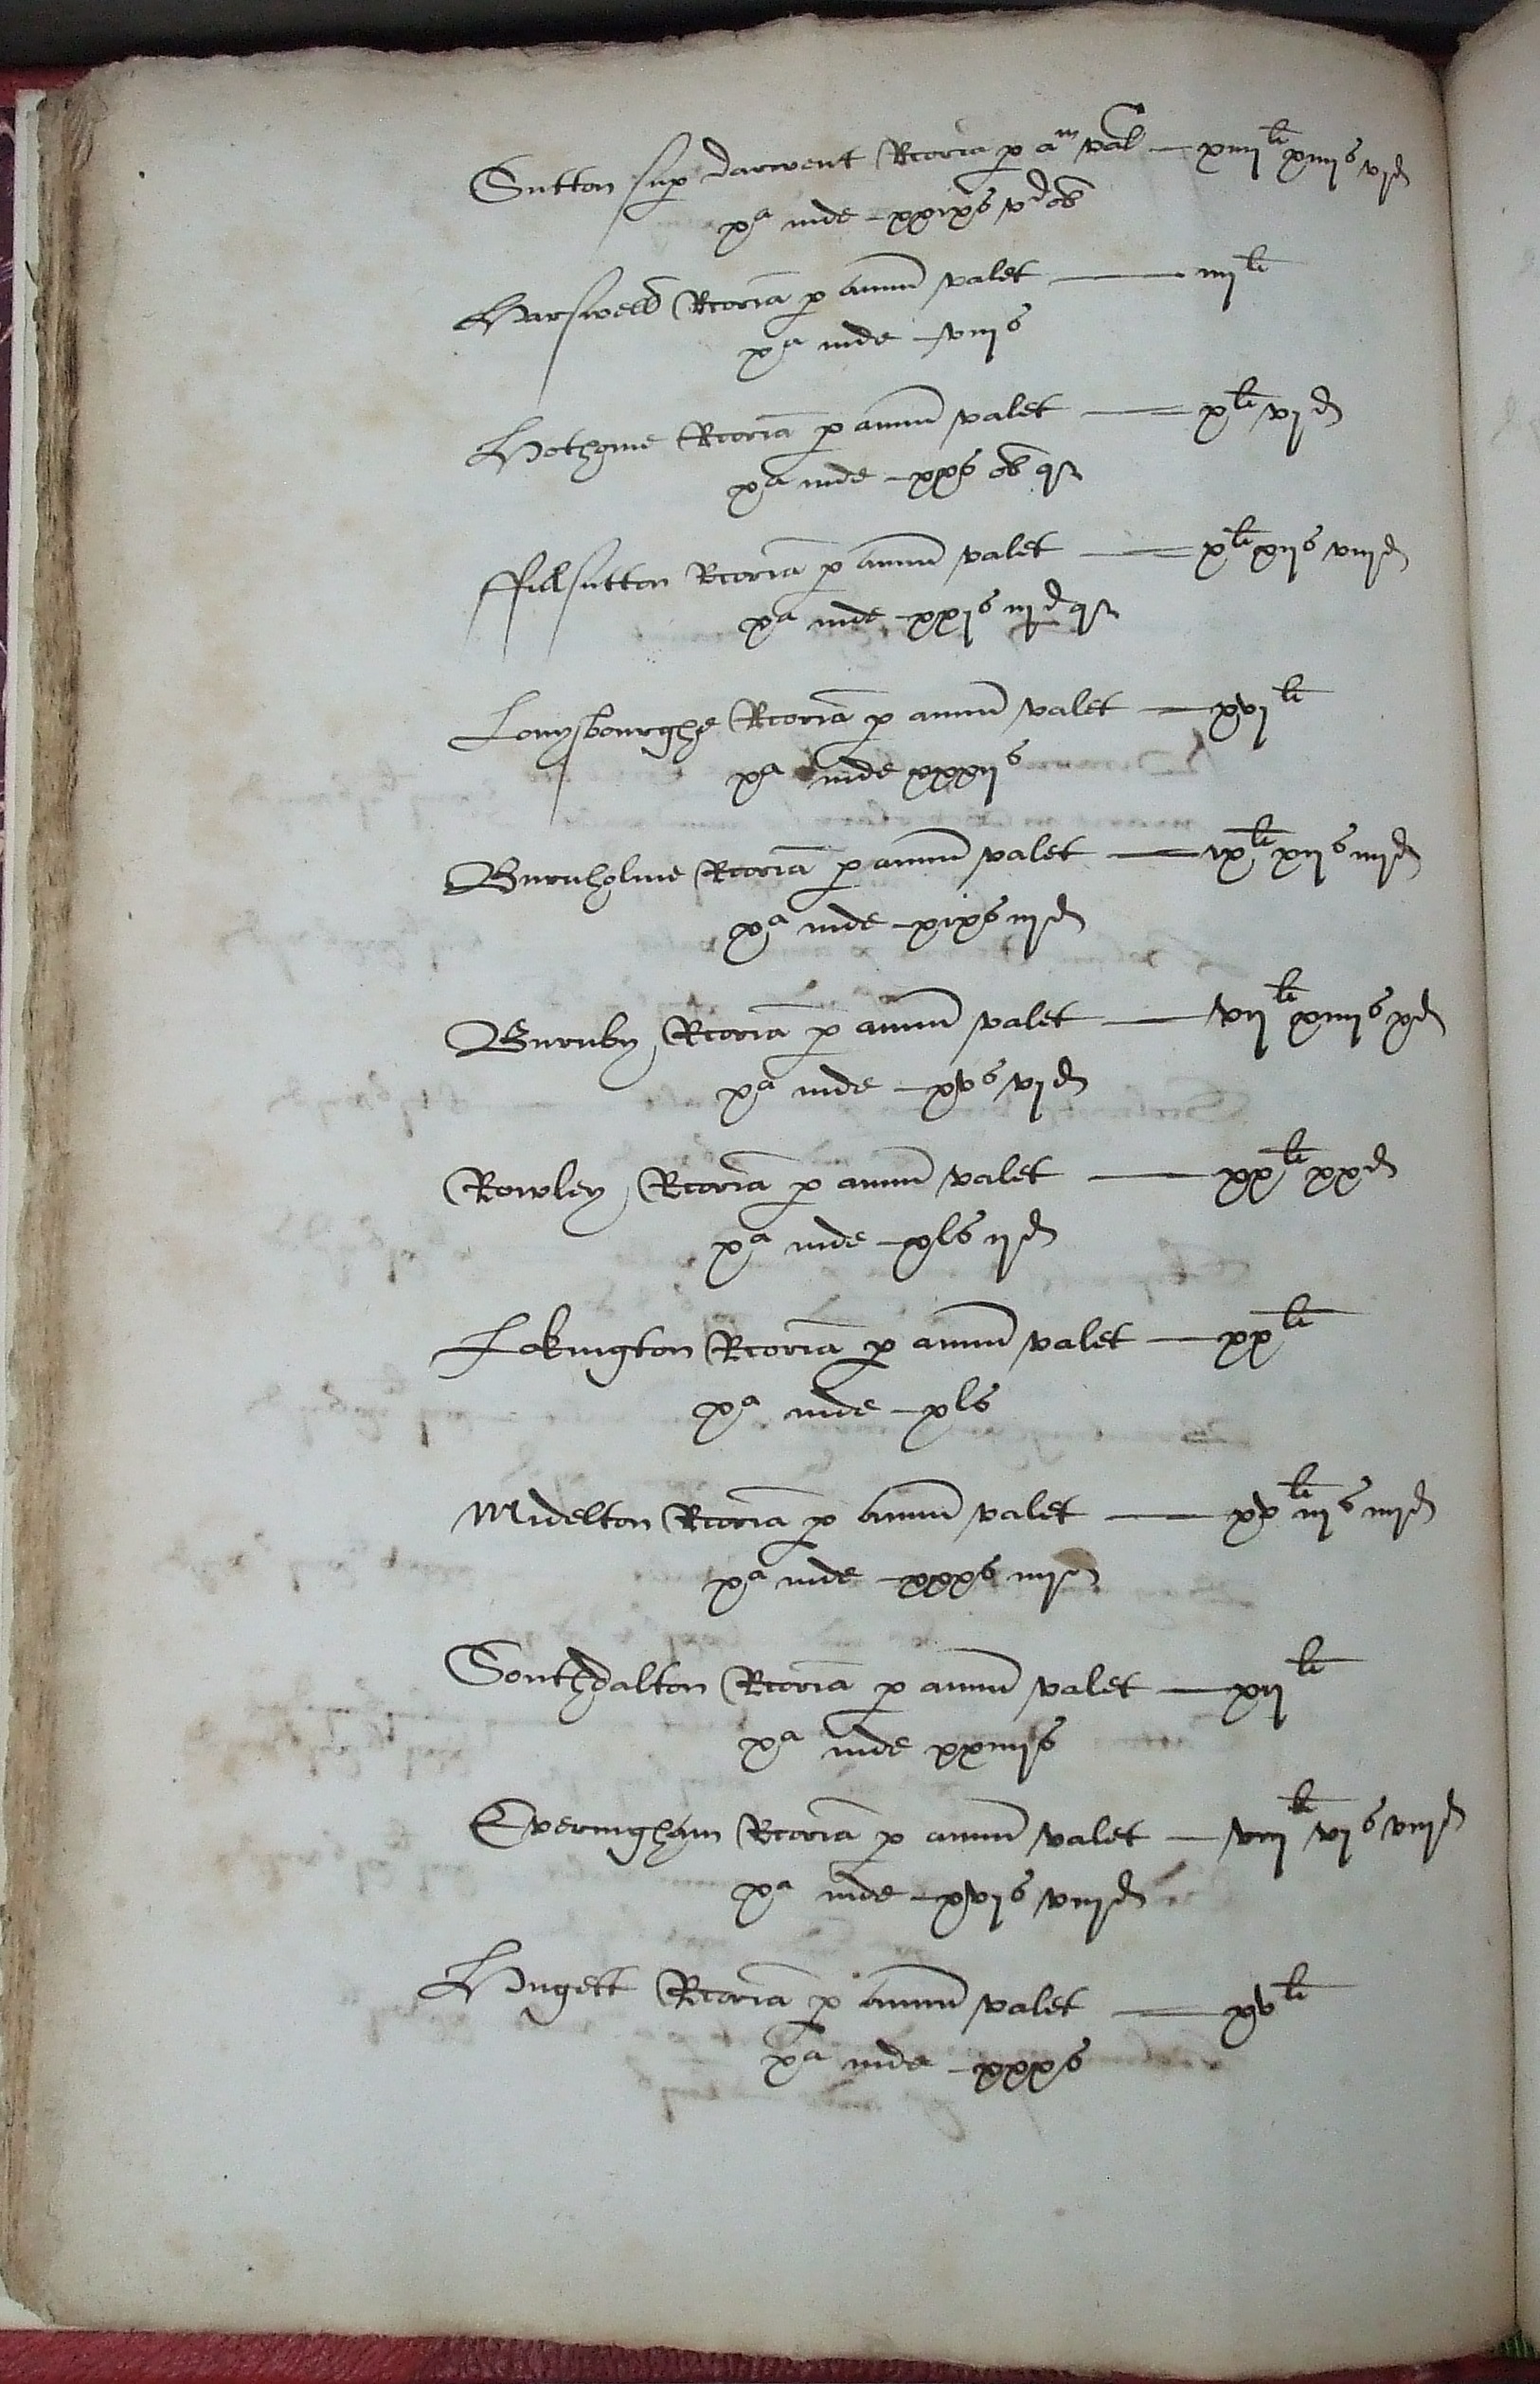 Sutton sup darwent Rcoria p a^m val — xiiij^li xiiij^s vj^d
x^a inde — xxix^s v^d ob
Harswell Rcoria p annu valet — iiij^li
x^a inde — viij^s
Hothome Rcoria p annu valet — x^li vj^d
x^a inde — xx^s ob q^a
ffullsutton Rcoria p annu valet — x^li xij^s viij^d
x^a inde — xxj^s iij^d q^a
Lonysbourghe Rcoria p annu valet — xvj^li
x^a inde xxxij^s
Burnholme Rcoria p annu valet — ix^li xij^s iiij^d
x^a inde — xix^s iij^d
Burnby Rcoria p annu valet — vij^li xiiij^s x^d
x^a inde — xv^s vj^d
Rowley Rcoria p annu valet — xx^li xx^d
x^a inde — xl^s ij^d
Lokington Rcoria p annu valet — xx^li
x^a inde — xl^s
Midelton Rcoria p annu valet — xv^li iij^s iiij^d
x^a inde — xxx^s iiij^d
Southdalton Rcoria p annu valet — xij^li
x^a inde xxiiij^s
Everingham Rcoria p annu valet — viij^li vj^s viij^d
x^a inde — xvj^s viij^d
Hugett Rcoria p annu valet — xv^li
x^a inde — xxx^s